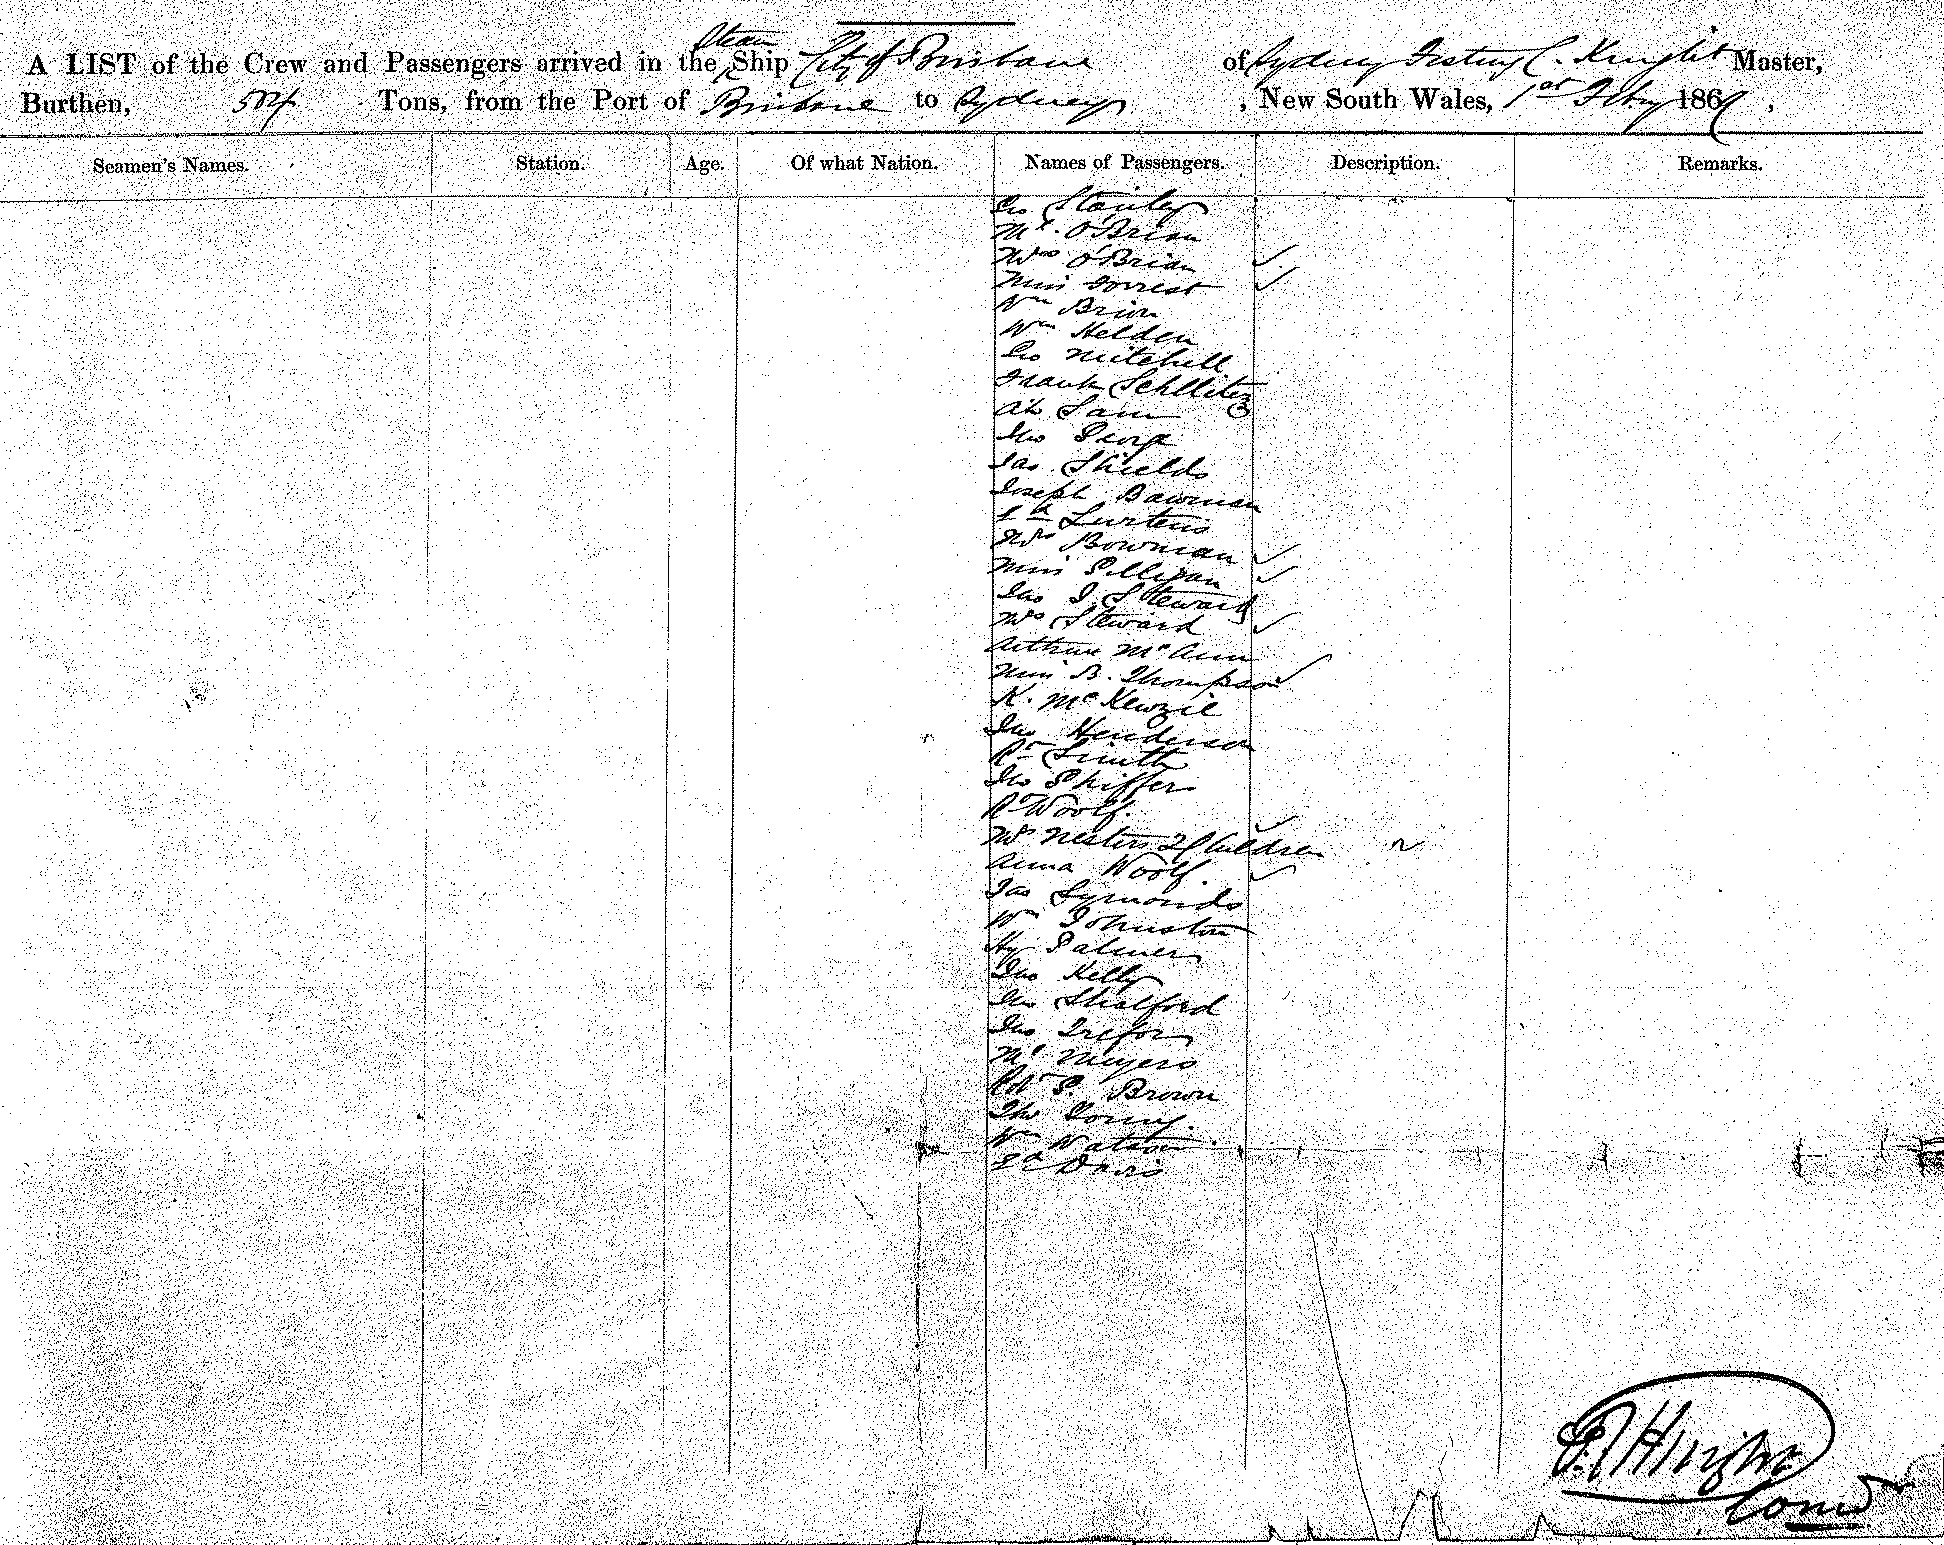 Steam
A LIST of the Crew and Passengers arrived in the Ship City of Brisbane of Sydney Knight Master,
Burthen, 504 Tons, from the Port of Brisbane to Sydney, New South Wales, 1st Feby 1869,
Seamen's Names. Station. Age. Of what Nation. Names of Passengers. Description. Remarks.
Geo Stanley
Mr. O'Brian
Mrs O'Brian ✓
Miss Forrest ✓
Wm Brion
Wm Helden
Geo Mitchell
Frank Schllitz
Ah Sam
Jno George
Jas Shields
Joseph Bawman
Lurtens
Mrs Bowman ✓
Miss Gilligan ✓
Jas J Steward
Mrs Steward ✓
Arthur McAnn
Miss B. Thompson ✓
K. McKenzie
Jno Henderson
Smith
Jno Shiffer
Woolf.
Mrs Nesten 2 Children ✓
Anna Woolf. ✓
Jas Symonds
Wm Johnston
Hy Palmer
Jno Kelly
Jno Shalford
Jno Trefor
Mr Meyers
Brown
Wm Watson
Davis
Knight
Comd